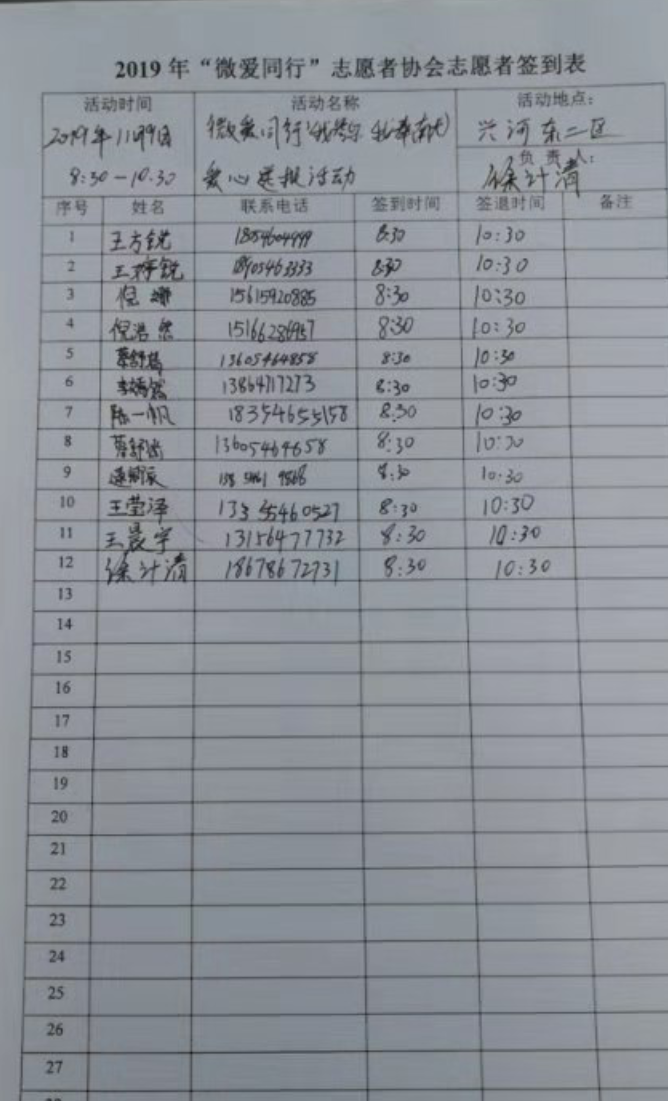 2019年“微爱同行”志愿者协会志愿者签到表
活动时间 活动名称 活动地点:
2019年11月9日 微爱同行 兴河东二区
8:30-10:30 爱心 活动 负责人: 徐计清
序号 姓名 联系电话 签到时间 签退时间 备注
1 王方锐 8:30 10:30
2 8:30 10:30
3 倪 15615920885 8:30 10:30
4 倪浩然 8:30 10:30
5 13605464658 8:30 10:30
6 13864717273 8:30 10:30
7 陈一帆 18354655158 8:30 10:30
8 13605464658 8:30 10:30
9 8:30 10:30
10 王莹泽 13355460527 8:30 10:30
11 王晨宇 13156477732 8:30 10:30
12 徐计清 18678672731 8:30 10:30
13
14
15
16
17
18
19
20
21
22
23
24
25
26
27